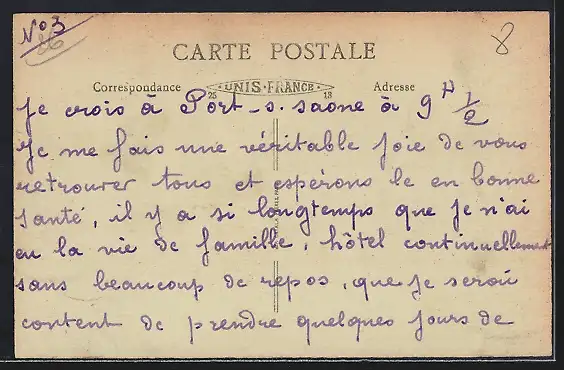 N° 3
86
8
CARTE POSTALE
Correspondance
UNIS-FRANCE
25 13
Adresse
je crois à Port-s-Saone à 9 H 1/2
Je me fais une véritable joie de vous
retrouver tous et espérons le en bonne
santé, il y a si longtemps que je n'ai
eu la vie de famille, hôtel continuellement
sans beaucoup de repos, que je serai
content de prendre quelques jours de